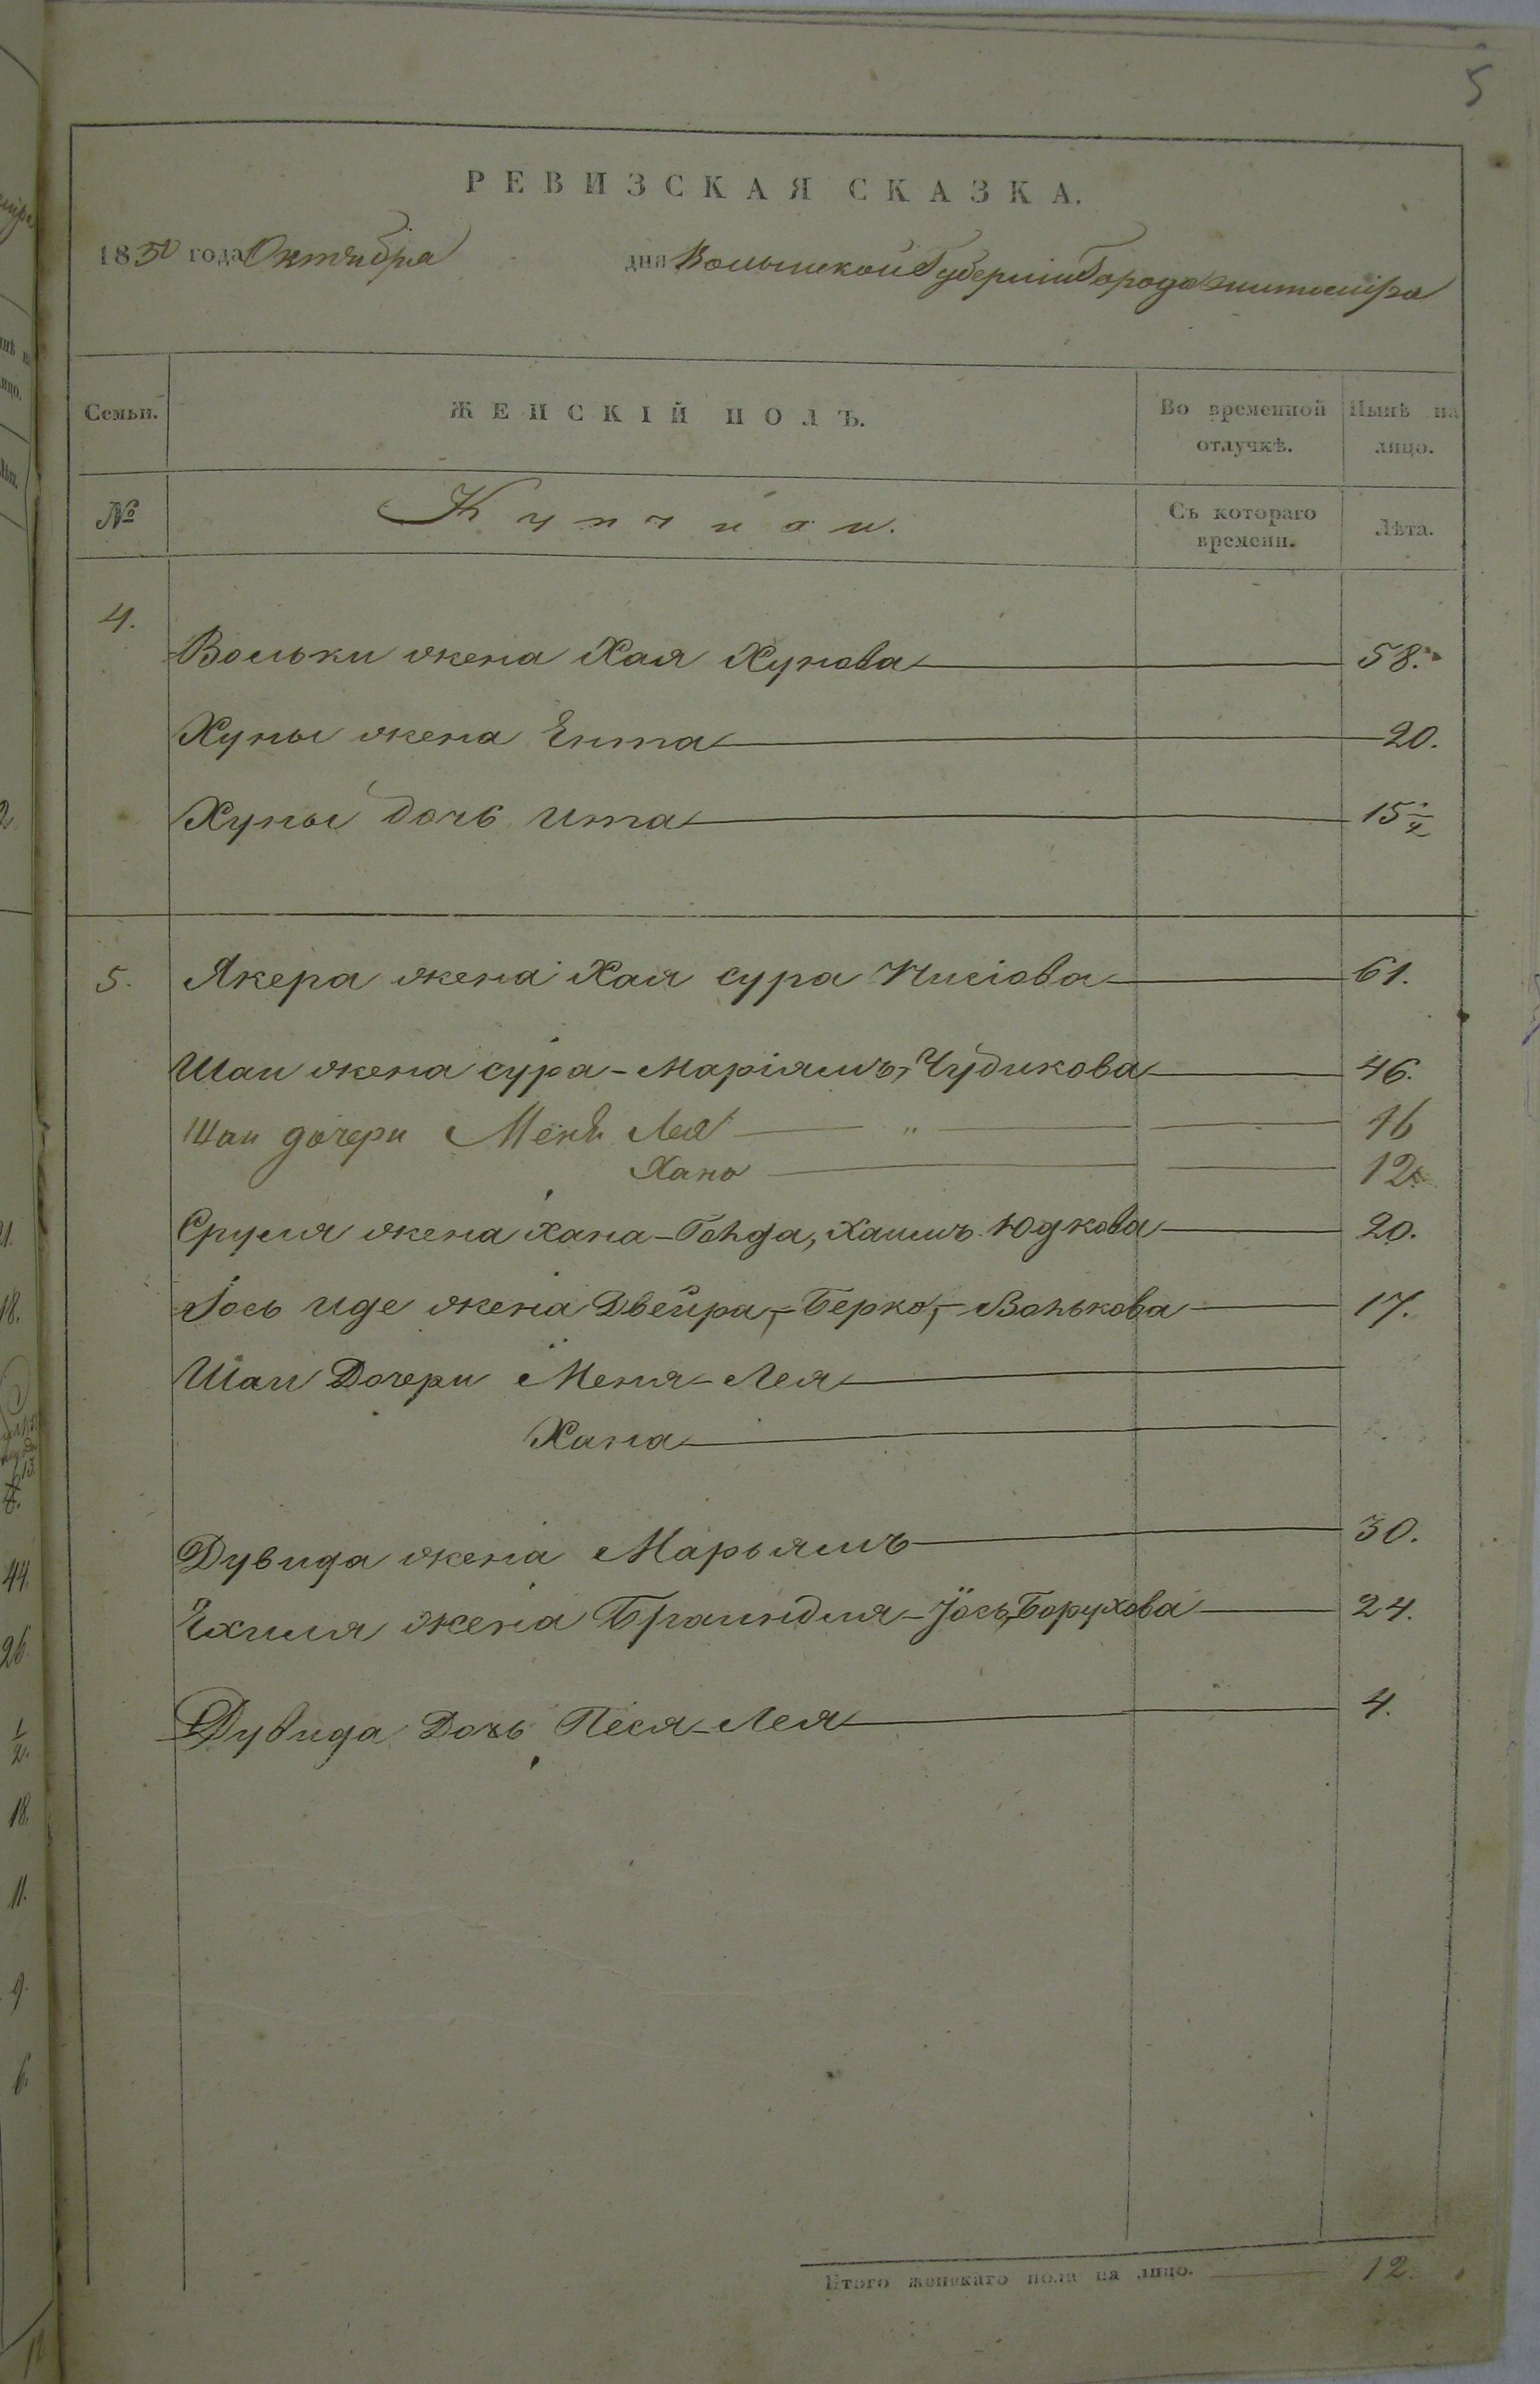 5
РЕВИЗСКАЯ СКАЗКА.
1850 года Октября дня Волынской Губерніи Города Житоміра
Семьи. ЖЕНСКІЙ ПОЛЪ. Во временной отлучкѣ. Нынѣ на лицо.
№ Купчихи. Съ котораго времени. Лѣта.
4.
Вольки жена Хая Хунова 58.
Хуны жена Ента 20.
Хуны дочь Ита 15 1/2
5. Якера жена Хая сура 61.
Шаи жена сура-Маріямъ, Чудикова 46.
Шаи дочери Меня Лея " 16
Хана 12.
Сруля жена Хана-Гольда, Хаимъ Юдкова 20.
Іось иде жена Двейра,-Берко,-Волькова 17.
Шаи Дочери Меня-Лея
Хана
Дувида жена Марьямъ 30.
Ехиля жена Браиндля-Іось, Борухова 24.
Дувида Дочь Песя-Лея 4.
Итого женскаго пола на лицо. 12.
2.
21.
18.
44.
26.
1/2.
18.
11.
9.
6.